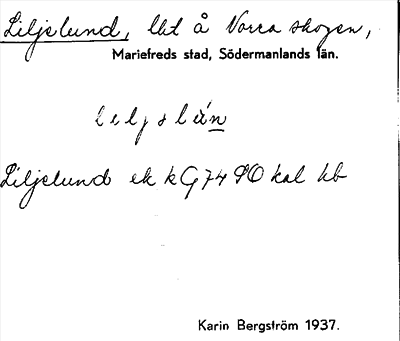 Liljelund, lht å Norra skogen,
Mariefreds stad, Södermanlands län.
Liljelund ek kG74 90 kal hb
Karin Bergström 1937.